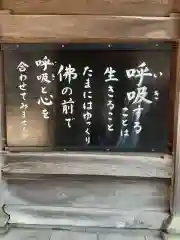 呼吸する
ことは
生きること
たまにはゆっくり
佛の前で
呼吸と心を
合わせてみませんか